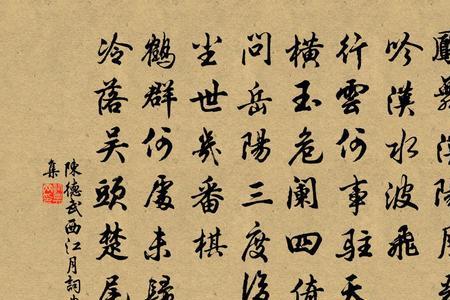 吟漢水波飛
行雲何事駐天
橫玉危闌四倚
問岳陽三度
塵世幾番棋
鶴群何處未歸
冷落吳頭楚尾
陳德武西江月詞
集